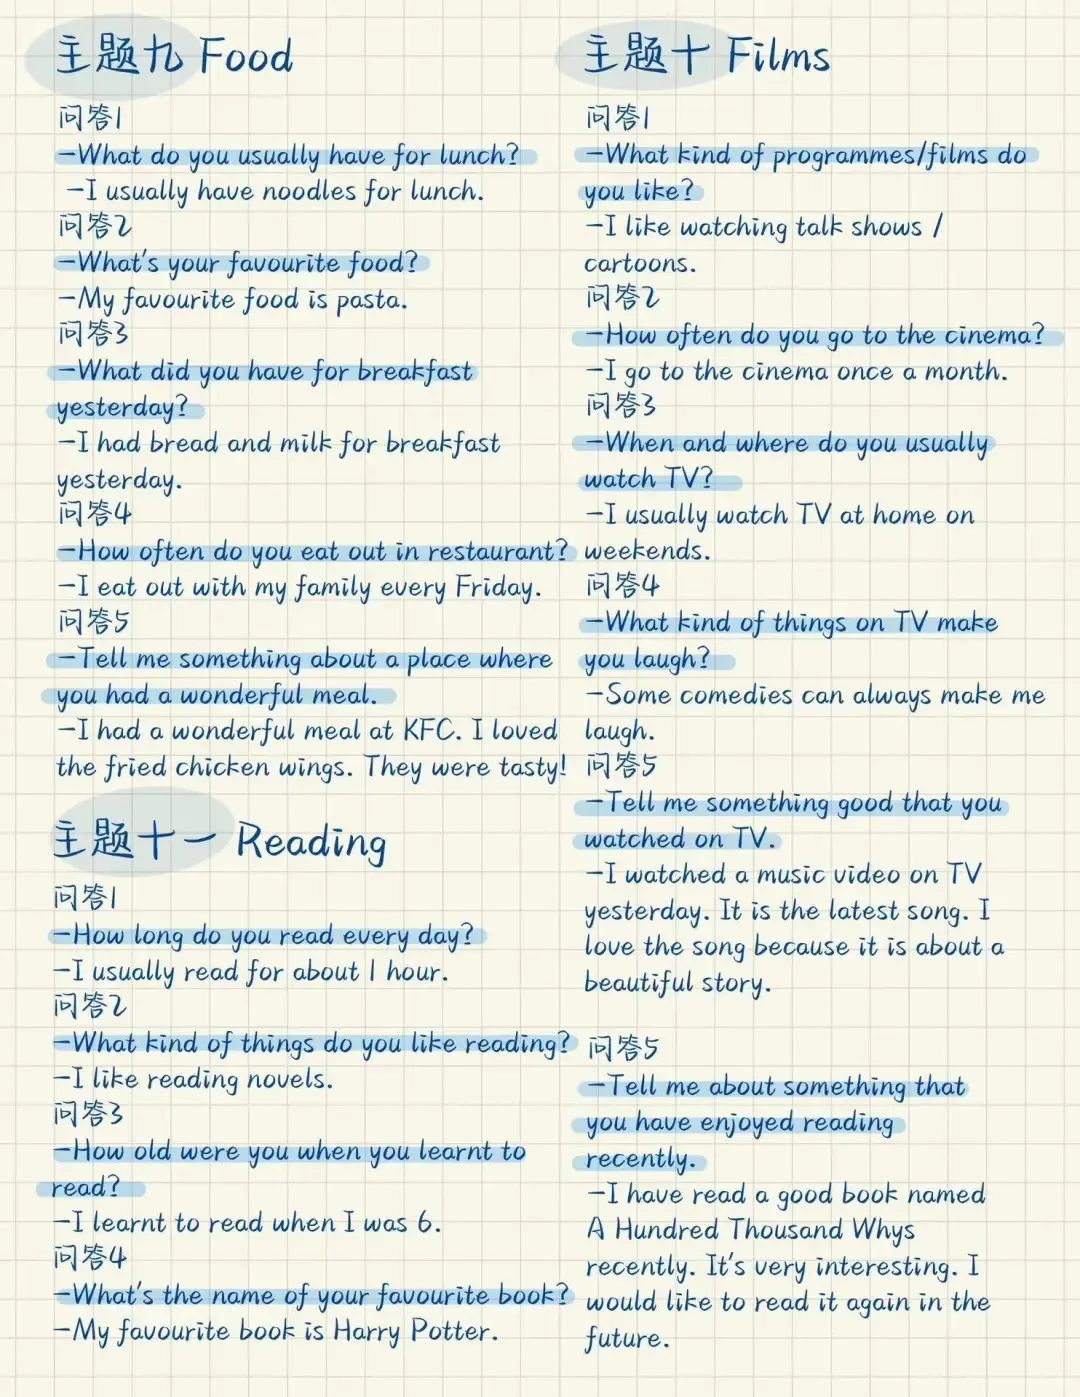 主题九 Food
问答1
-What do you usually have for lunch?
-I usually have noodles for lunch.
问答2
-What's your favourite food?
-My favourite food is pasta.
问答3
-What did you have for breakfast
yesterday?
-I had bread and milk for breakfast
yesterday.
问答4
-How often do you eat out in restaurant?
-I eat out with my family every Friday.
问答5
-Tell me something about a place where
you had a wonderful meal.
-I had a wonderful meal at KFC. I loved
the fried chicken wings. They were tasty!
主题十 Films
问答1
-What kind of programmes/films do
you like?
-I like watching talk shows /
cartoons.
问答2
-How often do you go to the cinema?
-I go to the cinema once a month.
问答3
-When and where do you usually
watch TV?
-I usually watch TV at home on
weekends.
问答4
-What kind of things on TV make
you laugh?
-Some comedies can always make me
laugh.
问答5
-Tell me something good that you
watched on TV.
-I watched a music video on TV
yesterday. It is the latest song. I
love the song because it is about a
beautiful story.
主题十一 Reading
问答1
-How long do you read every day?
-I usually read for about 1 hour.
问答2
-What kind of things do you like reading?
-I like reading novels.
问答3
-How old were you when you learnt to
read?
-I learnt to read when I was 6.
问答4
-What's the name of your favourite book?
-My favourite book is Harry Potter.
问答5
-Tell me about something that
you have enjoyed reading
recently.
-I have read a good book named
A Hundred Thousand Whys
recently. It's very interesting. I
would like to read it again in the
future.